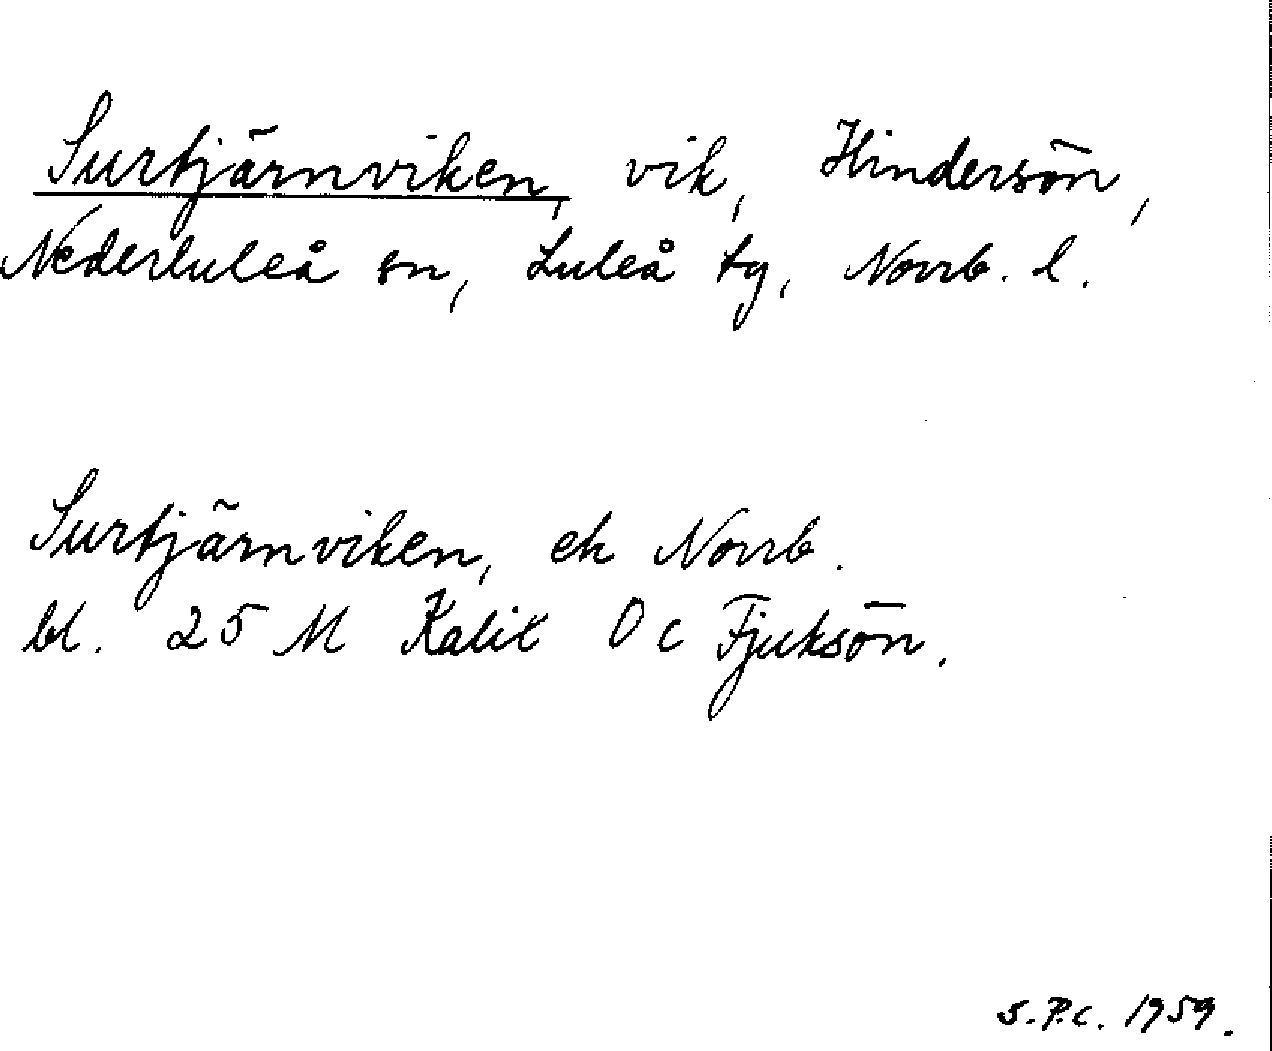 Surtjärnviken, vik, Hindersön,
Nederluleå sn, Luleå tg, Norrb. l.
Surtjärnviken, ek Norrb.
bl. 25 M Kalix 0 c Fjuksön.
S.P.C. 1959.